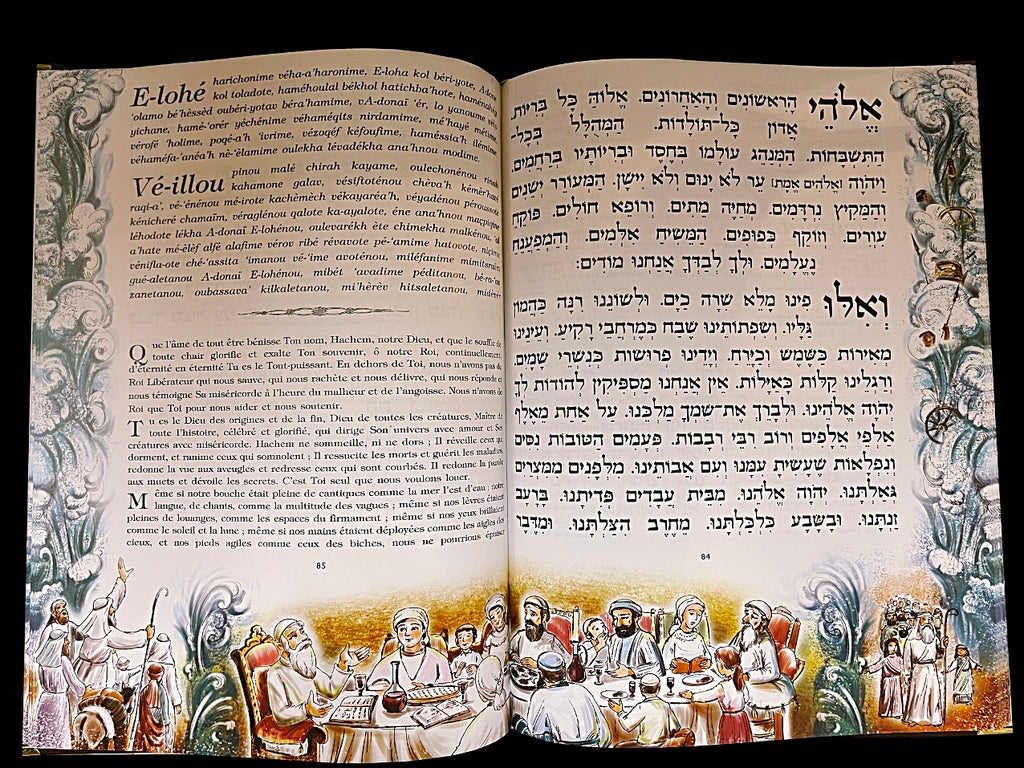 אֱלֹהֵי הָרִאשׁוֹנִים וְהָאַחֲרוֹנִים. אֱלוֹהַּ כָּל בְּרִיּוֹת.
אֲדוֹן כָּל־תּוֹלָדוֹת. הַמְהֻלָּל בְּכָל־
הַתִּשְׁבָּחוֹת. הַמְנַהֵג עוֹלָמוֹ בְּחֶסֶד וּבְרִיּוֹתָיו בְּרַחֲמִים.
וַיהֹוָה (אֱלֹהִים אֱמֶת) עֵר לֹא יָנוּם וְלֹא יִישָׁן. הַמְעוֹרֵר יְשֵׁנִים
וְהַמֵּקִיץ נִרְדָּמִים. מְחַיֵּה מֵתִים. וְרוֹפֵא חוֹלִים. פּוֹקֵחַ
עִוְרִים. וְזוֹקֵף כְּפוּפִים. הַמֵּשִׂיחַ אִלְּמִים. וְהַמְפַעֲנֵחַ
נֶעֱלָמִים. וּלְךָ לְבַדְּךָ אֲנַחְנוּ מוֹדִים:
וְאִלּוּ פִינוּ מָלֵא שִׁירָה כַיָּם. וּלְשׁוֹנֵנוּ רִנָּה כַּהֲמוֹן
גַּלָּיו. וְשִׂפְתוֹתֵינוּ שֶׁבַח כְּמֶרְחֲבֵי רָקִיעַ. וְעֵינֵינוּ
מְאִירוֹת כַּשֶּׁמֶשׁ וְכַיָּרֵחַ. וְיָדֵינוּ פְרוּשׂוֹת כְּנִשְׁרֵי שָׁמָיִם.
וְרַגְלֵינוּ קַלּוֹת כָּאַיָּלוֹת. אֵין אֲנַחְנוּ מַסְפִּיקִין לְהוֹדוֹת לְךָ
יְהֹוָה אֱלֹהֵינוּ. וּלְבָרֵךְ אֶת־שִׁמְךָ מַלְכֵּנוּ. עַל אַחַת מֵאֶלֶף
אַלְפֵי אֲלָפִים וְרוֹב רִבֵּי רְבָבוֹת. פְּעָמִים הַטּוֹבוֹת נִסִּים
וְנִפְלָאוֹת שֶׁעָשִׂיתָ עִמָּנוּ וְעִם אֲבוֹתֵינוּ. מִלְּפָנִים מִמִּצְרַיִם
גְּאַלְתָּנוּ. יְהֹוָה אֱלֹהֵנוּ. מִבֵּית עֲבָדִים פְּדִיתָנוּ. בְּרָעָב
זַנְתָּנוּ. וּבְשָׂבָע כִּלְכַּלְתָּנוּ. מֵחֶרֶב הִצַּלְתָּנוּ. וּמִדֶּבֶר
84
E-lohé harichonime véha-a'haronime, E-loha kol béri-yote, Adone
kol toladote, haméhoulal békhol hatichba'hote, haménahég
'olamo bé'hèssèd oubéri-yotav béra'hamime, vA-donaï 'ér, lo yanoume vélo
yichane, hamé-'orér yéchénime véhaméqits nirdamime, mé'hayé métime
vérofé 'holime, poqé-a'h 'ivrime, vézoqéf kéfoufime, haméssia'h ilémime
véhaméfa-'anéa'h nè-'èlamime oulekha lévadékha ana'hnou modime.
Vé-illou pinou malé chirah kayame, oulechonénou rinah
kahamone galav, vésifloténou chèva'h kémèr'havé
raqi-a', vé-'énénou mé-irote kachèmèch vékayaréa'h, véyadénou péroussote
kénicheré chamaïm, véraglénou qalote ka-ayalote, éne ana'hnou maçpiqine
léhodote lékha A-donaï E-lohénou, oulevarékh ète chimekha malkénou, 'al
a'hate mé-èlèf alfé alafime vérov ribé révavote pé-'amime hatovote, niçime
vénifla-ote ché-'assita 'imanou vé-'ime avoténou, miléfanime mimitsraïm
gué-aletanou A-donaï E-lohénou, mibét 'avadime péditanou, bé-ra-'av
zanetanou, oubassava' kilkaletanou, mi'hèrèv hitsaletanou, midévèr
Que l'âme de tout être bénisse Ton nom, Hachem, notre Dieu, et que le souffle de
toute chair glorifie et exalte Ton souvenir, ô notre Roi, continuellement,
d'éternité en éternité Tu es le Tout-puissant. En dehors de Toi, nous n'avons pas de
Roi Libérateur qui nous sauve, qui nous rachète et nous délivre, qui nous réponde et
nous témoigne Sa miséricorde à l'heure du malheur et de l'angoisse. Nous n'avons de
Roi que Toi pour nous aider et nous soutenir.
Tu es le Dieu des origines et de la fin, Dieu de toutes les créatures, Maître de
toute l'histoire, célébré et glorifié, qui dirige Son univers avec amour et Ses
créatures avec miséricorde. Hachem ne sommeille, ni ne dors ; Il réveille ceux qui
dorment, et ranime ceux qui somnolent ; Il ressucite les morts et guérit les malades,
redonne la vue aux aveugles et redresse ceux qui sont courbés. Il redonne la parole
aux muets et dévoile les secrets. C'est Toi seul que nous voulons louer.
Même si notre bouche était pleine de cantiques comme la mer l'est d'eau ; notre
langue, de chants, comme la multitude des vagues ; même si nos lèvres étaient
pleines de louanges, comme les espaces du firmament ; même si nos yeux brillaient
comme le soleil et la lune ; même si nos mains étaient déployées comme les aigles des
cieux, et nos pieds agiles comme ceux des biches, nous ne pourrions épuiser
85